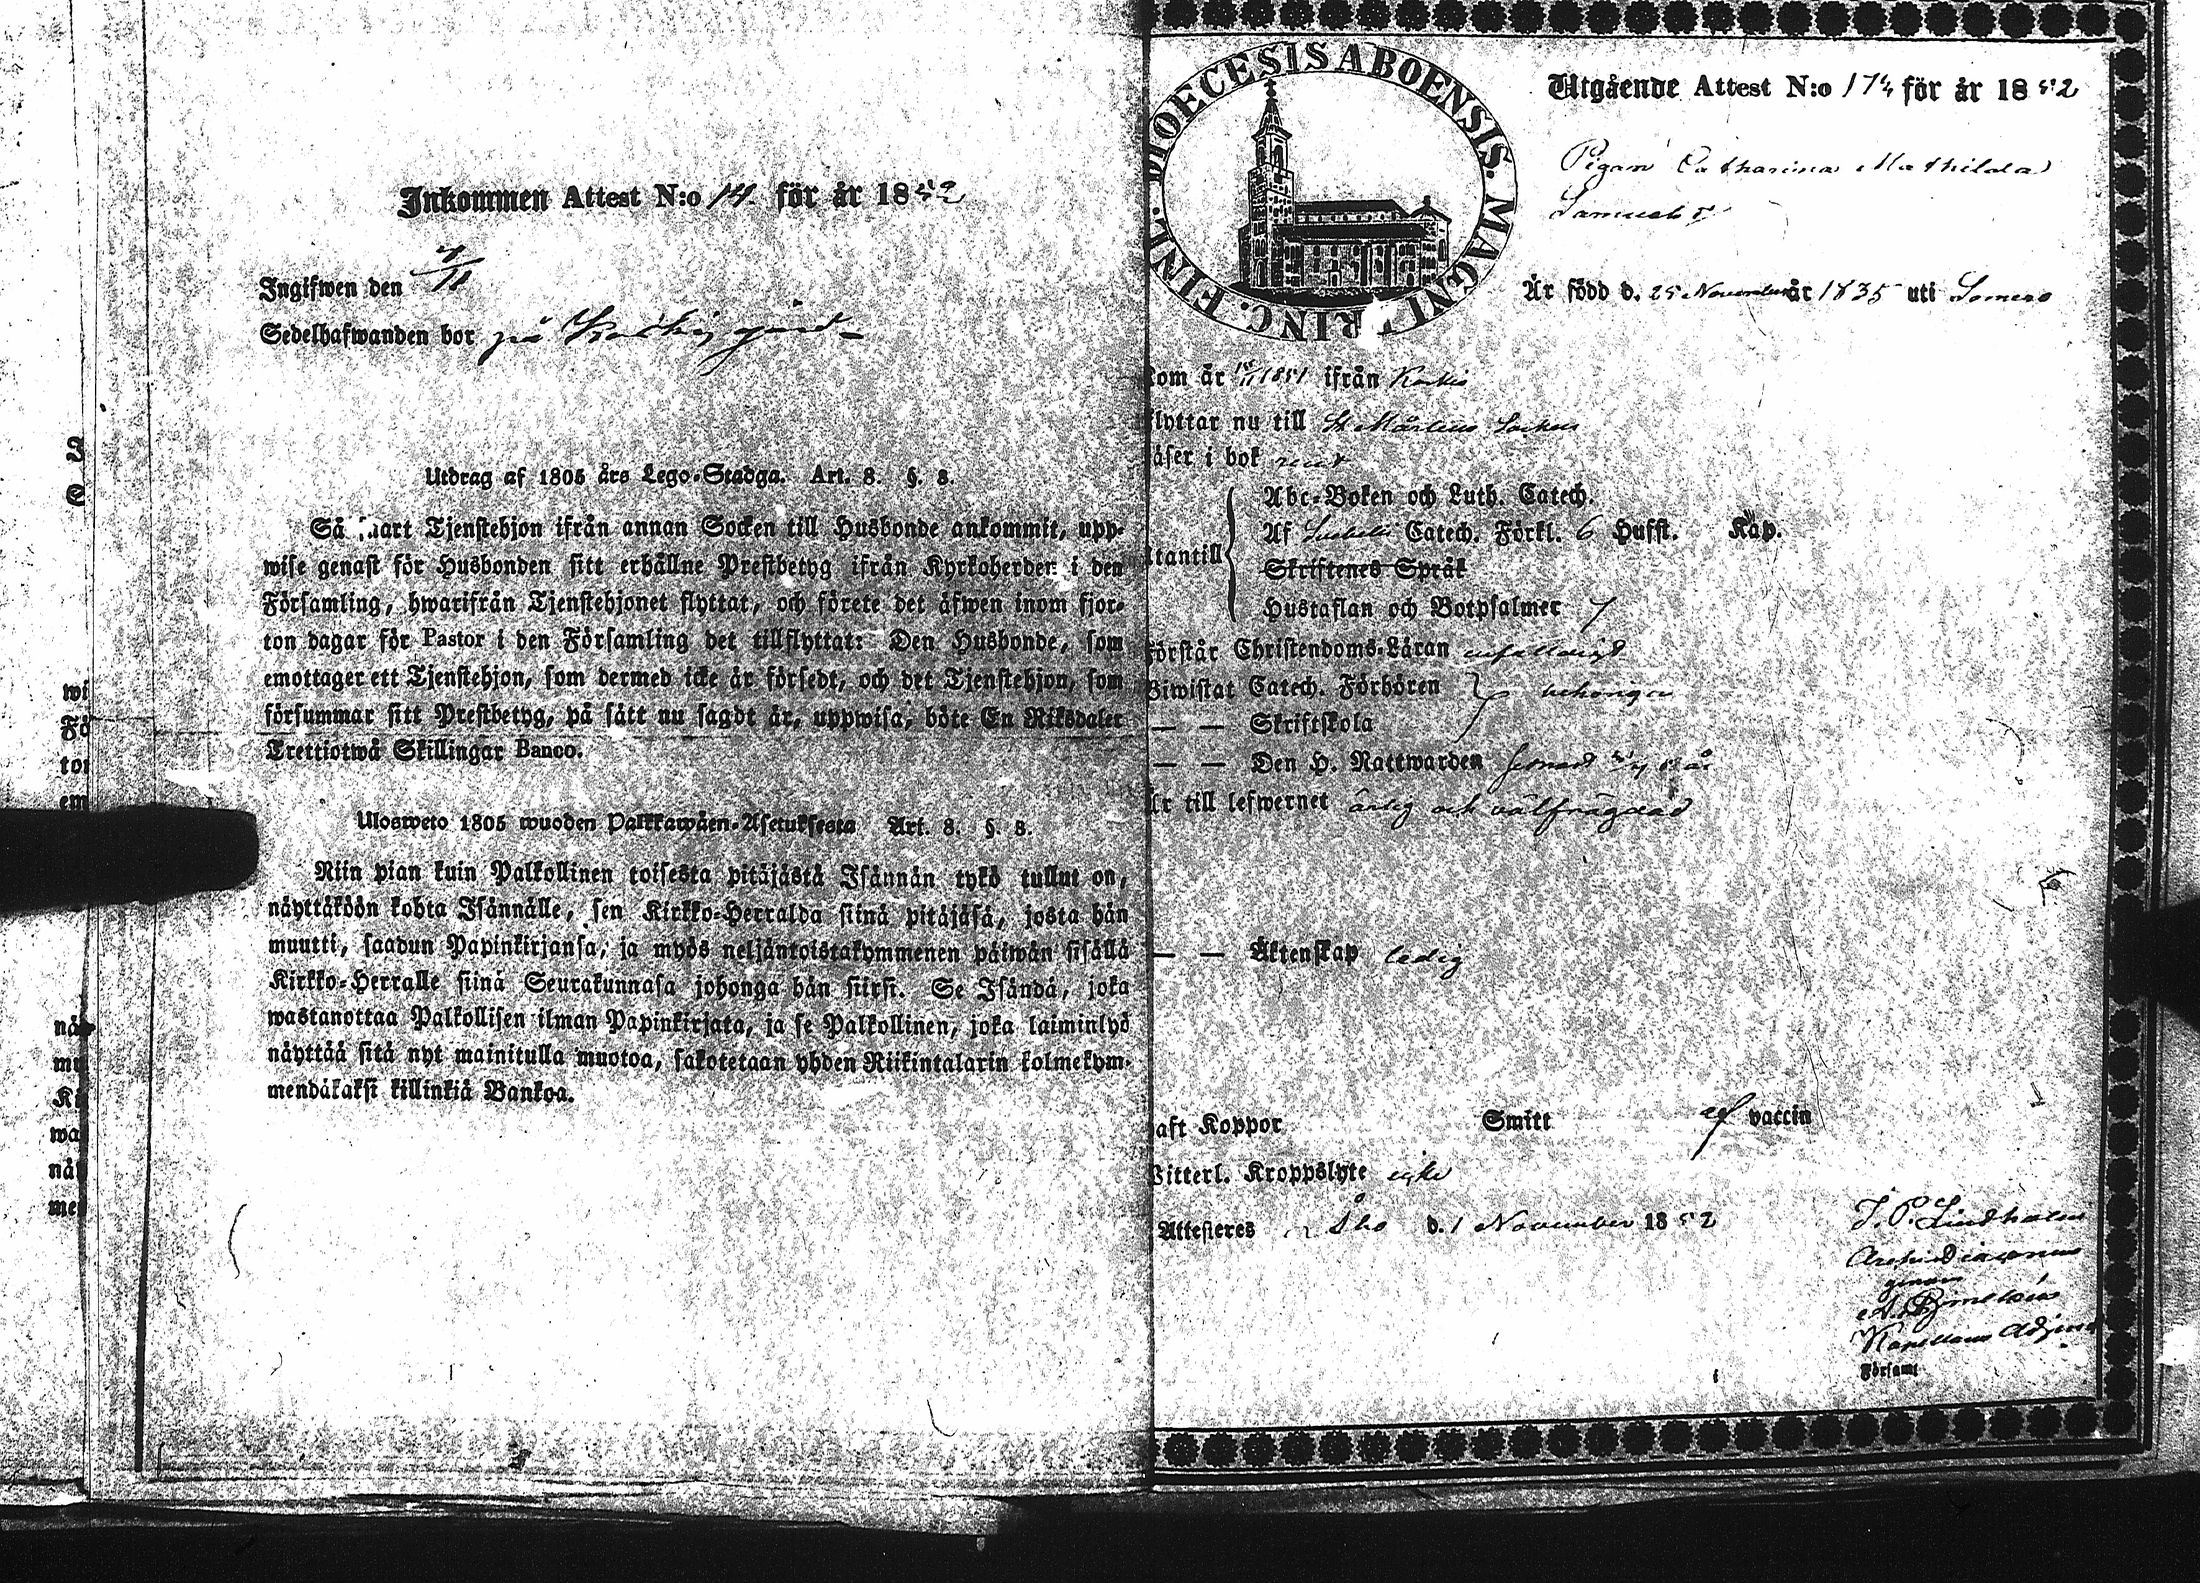 Inkommen Attest N:o 14. för år 1852
Ingifwen den 7/11
Sedelhafwanden bor på gård
Utdrag af 1805 års Lego-Stadga. Art. 8. §. 8.
Så snart Tjenstehjon ifrån annan Socken till Husbonde ankommit, upp-
wise genast för Husbonden sitt erhållne Prestbetyg ifrån Kyrkoherden i den
Församling, hwarifrån Tjenstehjonet flyttat, och förete det äfwen inom fjor-
ton dagar för Pastor i den Församling det tillflyttat: Den Husbonde, som
emottager ett Tjenstehjon, som dermed icke är försedt, och det Tjenstehjon, som
försummar sitt Prestbetyg, på sätt nu sagdt är, uppwisa, böte En Riksdaler
Trettiotwå Skillingar Banco.
Ulosweto 1805 wuoden Palkkawäen-Asetuksesta Art. 8. §. 8.
Niin pian kuin Palkollinen toisesta pitäjästä Isännän tykö tullut on,
näyttäköön kohta Isännälle, sen Kirkko-Herralda siinä pitäjäsä, josta hän
muutti, saadun Papinkirjansa, ja myös neljäntoistakymmenen päiwän sisällä
Kirkko-Herralle siinä Seurakunnasa johonga hän siirsi. Se Isändä, joka
wastanottaa Palkollisen ilman Papinkirjata, ja se Palkollinen, joka laiminlyö
näyttää sitä nyt mainitulla muotoa, sakotetaan yhden Riikintalarin kolmekym-
mendäkaksi killinkiä Bankoa.
DIOECESIS ABOENSIS. MAGNI PRINC. FINL.
Utgående Attest N:o 174 för år 1852
Pigan Catharina Mathilda
Samuels
Är född d. 25 November år 1835 uti Somero
Kom år 1851 ifrån Karkis
flyttar nu till St Mårtens Socken
läser i bok rent
Abc-Boken och Luth. Catech.
Utantill Af Svebelii Catech. Förkl. 6 Hufst. Kap.
Skriftenes Språk
Hustaflan och Botpsalmer 7
Förstår Christendoms-Läran enfaldigt
Biwistat Catech. Förhören behörigen
— — Skriftskola
— — Den H. Nattwarden senast
Är till lefwernet ärlig och välfrägdad
— — Äktenskap ledig
haft Koppor Smitt af vaccin
Vitterl. Kroppslyte icke
Attesteres Åbo d. 1 November 1852
J. P. Lindholm
Archidiaconus
genom
Kapellans Adj
Församl